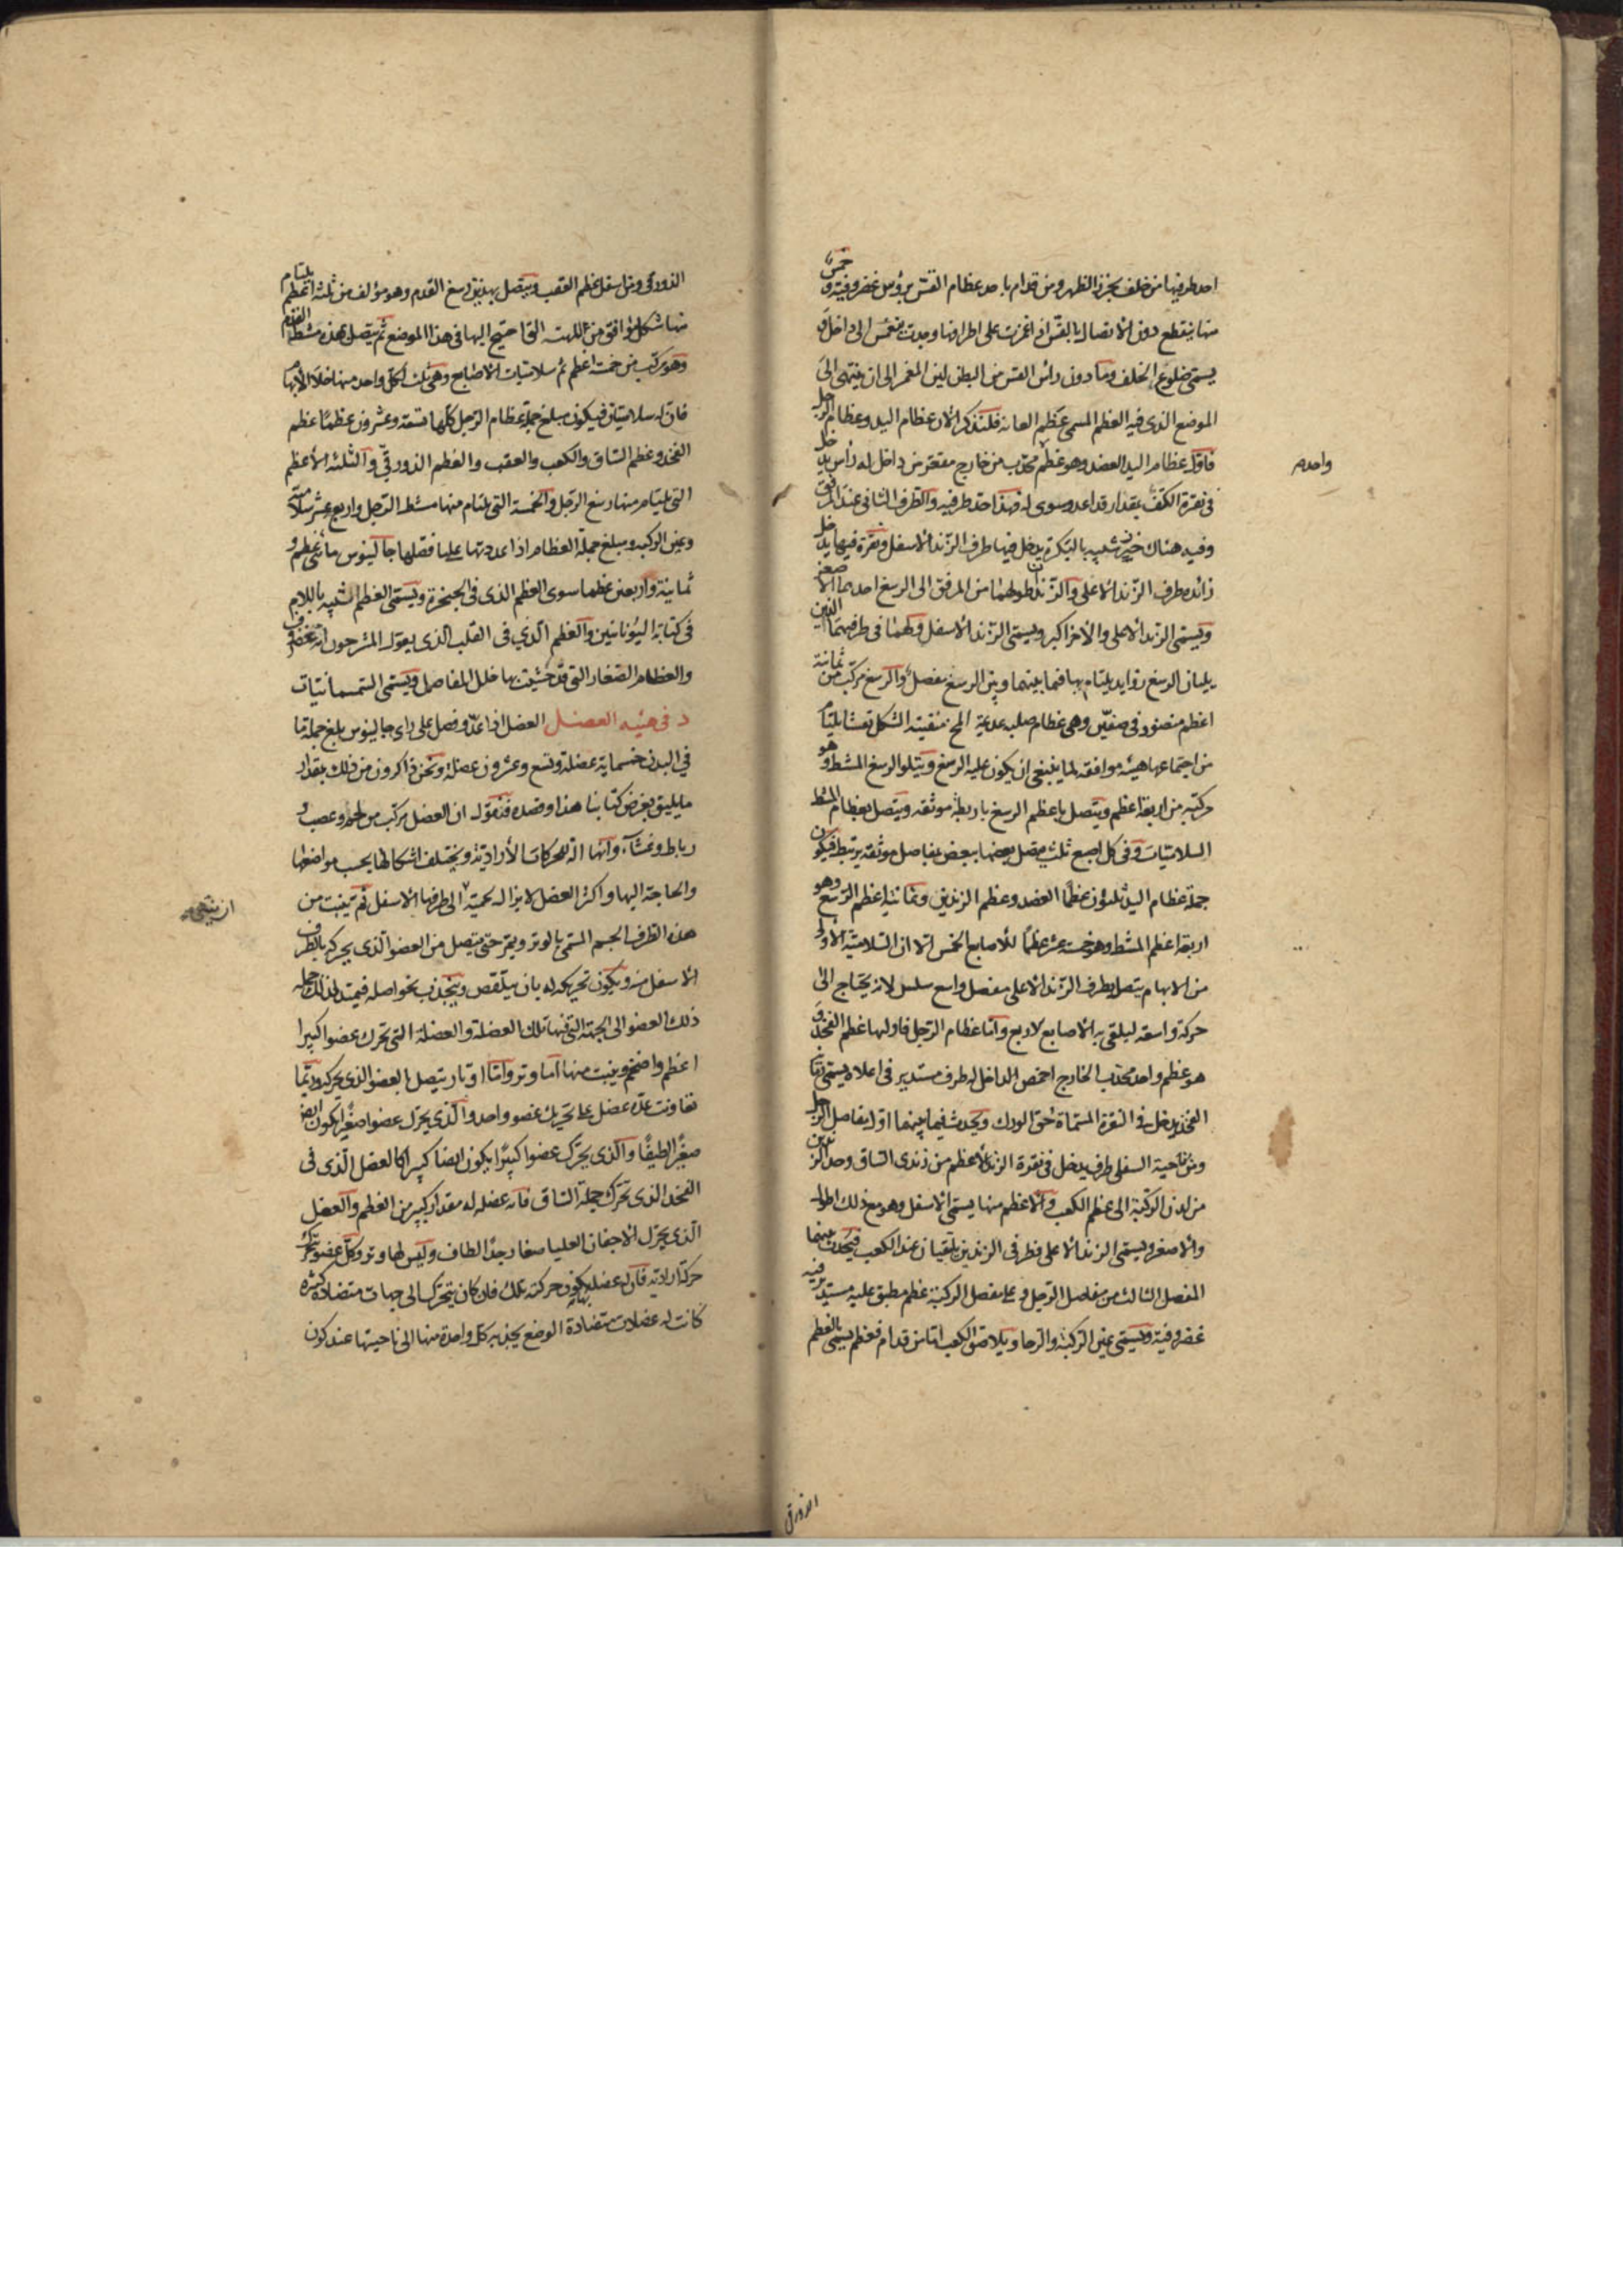 احد طرفيها من خلف بخرز الظهر ومن قدام باحد عظام القس برؤس غضروفية وخمس
منها ينقطع دون الاتصال بالقس اذا غمزت على اطرافها وجدت تنغمس الى داخل و
يسمى ضلوع الخلف وما دون رأس القس من البطن لين المغمز الى ان ينتهى الى
الموضع الذى فيه العظم المسمى عظم العانة فلنذكر الان عظام اليد وعظام الرجل
فاول عظام اليد العضد وهو عظم محدب من خارج مقعر من داخل له رأس يدخل
فى نقرة الكتف بقدار قد اعد وسوى له فهذا احد طرفيه والطرف الثانى عند المرفق
وفيه هناك حز شبيه بالبكرة يدخل فيها طرف الزند الاسفل ونقرة فيها يدخل
زائدة طرف الزند الاعلى والزندان طولهما من المرفق الى الرسغ احدهما الاصغر
ويسمى الزند الاعلى والاخر اكبر ويسمى الزند الاسفل ولهما فى طرفيهما الذين
يليان الرسغ زوايد يلتام بها فيما بينهما وبين الرسغ مفصل والرسغ مركب من ثمانية
اعظم منضود فى صفين وهى عظام صلبه عديمة المخ متفنية الشكل تقشا يلتام
من اجتماعها هيئة موافقة لما ينبغى ان يكون عليه الرسغ ويتلوا الرسغ المشط وهو
مركبة من اربعة اعظم ويتصل باعظم الرسغ باربطة موثقه ويتصل بعظام المشط
السلاميات وفى كل اصبع ثلث متصل بعضها ببعض بمفاصل موثقه برتبط فيكون
جملة عظام اليد ثلثون عظما العضد وعظم الزندين وثمانية اعظم الرسغ وهو
اربعة اعظم المشط وهو خمسة عشر عظما للاصابع الخمس الا ان السلامية الاولى
من الابهام يتصل بطرف الزند الاعلى مفصل واسع سلس لانه يحتاج الى
حركة واسعه ليلقى به الاصابع لاربع واما عظام الرجل فاولها عظم الفخذ و
هو عظم واحد محدب الخارج اخمص الداخل له طرف مستدير فى اعلاه يسمى رمانة
الفخذ يدخل فى النقرة المسماة حق الورك ويحدث فيما بينهما اول مفاصل الرجل
ومن ناحية السفلى طرف يدخل فى نقرة الزند الاعظم من زندى الساق وحد الزندين
من لدن الركبة الى عظم الكعب والاعظم منها يسمى الاسفل وهو مع ذلك اطول
والاصغر يسمى الزند الاعلى فطرفى الزندين يلتقيان عند الكعب فيحدث بينهما
المفصل الثالث من مفاصل الرجل وعلى مفصل الركبة عظم مطبق عليه مستدير فيه
غضروفية ويسمى عين الركبة والرحا ويلاصق الكعب اما من قدام فعظم يسمى بالعظم
واحده
الزورقى
الزورقى ومن اسفل عظم العقب ويتصل بهذين رسغ القدم وهو مؤلف من ثلثة اعظم يلتام
منها شكل موافق من الهيئة التى احتيج اليها فى هذا الموضع ثم يتصل بهذه مشط القدم
وهو مركب من خمسة اعظم ثم سلاميات الاصابع وهى ثلث لكل واحد منها خلا الابهام
فان له سلاميتان فيكون مبلغ جملة عظام الرجل كلها تسعة وعشرون عظما عظم
الفخذ وعظم الساق والكعب والعقب والعظم الزورقى والثلثة الاعظم
التى يلتام منها رسغ الرجل والخمسة التى يلتام منها مشط الرجل واربع عشر سلامى
وعين الركبه ومبلغ جملة العظام اذا عددتها على ما فصلها جالينوس مائتى عظم و
ثمانية واربعين عظما سوى العظم الذى فى الحنجرة ويسمى العظم الشبيه باللام
فى كتابة اليونانيين والعظم الذي فى القلب الذى يقول المشرحون انه غضروف
والعظام الصغار التى قد حشيت بها خلل المفاصل ويسمى السمسمانيات
د فى هيئه العضل العضل اذا عد وفصل على راى جالينوس بلغ جملة ما
في البدن خمسماية عضلة وتسع وعشرون عضلة ونحن ذاكرون من ذلك بقدار
ما يليق بغرض كتابنا هذا وقصده فنقول ان العضل مركب من لحم وعصب و
رباط وغشاء وانها الة للحركات الأرادية ويختلف اشكالها بحسب مواضعها
والحاجة اليها واكثر العضل لا يزال لحمية الى طرفها الاسفل ثم ينبت من
هذه الطرف الجسم المسمى بالوتر ويمر حتى يتصل من العضو الذى يحركه بالطرف
الاسفل منه ويكون تحريكه له بان يتلقص وينجذب نحو اصله فيمتد لذلك جملة
ذلك العضو الى الجهة التى فيها تلك العضلة والعضلة التى تحرك عضوا كبيرا
اعظم واضخم وينبت منها اما وتر واما اوتار يتصل بالعضو الذى يحركه وربما
تعاونت عدة عضل على تحريك عضو واحد والذى يحرك عضوا صغيرا يكون ايضا
صغيرا لطيفا والذى يحرك عضوا كبيرا يكون ايضا كبيرا كالعضل الذى فى
الفخذ الذى تحرك جملة الساق فانه عضل له مقدار كبير من العظم والعضل
الذى يحرك الاجفان العليا صغار جدا لطاف وليس لها وتر وكل عضو يتحرك
حركة ارادية فان له عضلة بها يكون حركته تلك فان كان يتحرك الى جهات متضادة كثيرة
كانت له عضلات متضادة الوضع يجذبه كل واحدة منها الى ناحيتها عند كون